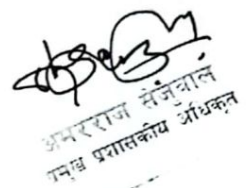 अमरराज सेंजवाल
प्रमुख प्रशासकीय अधिकृत